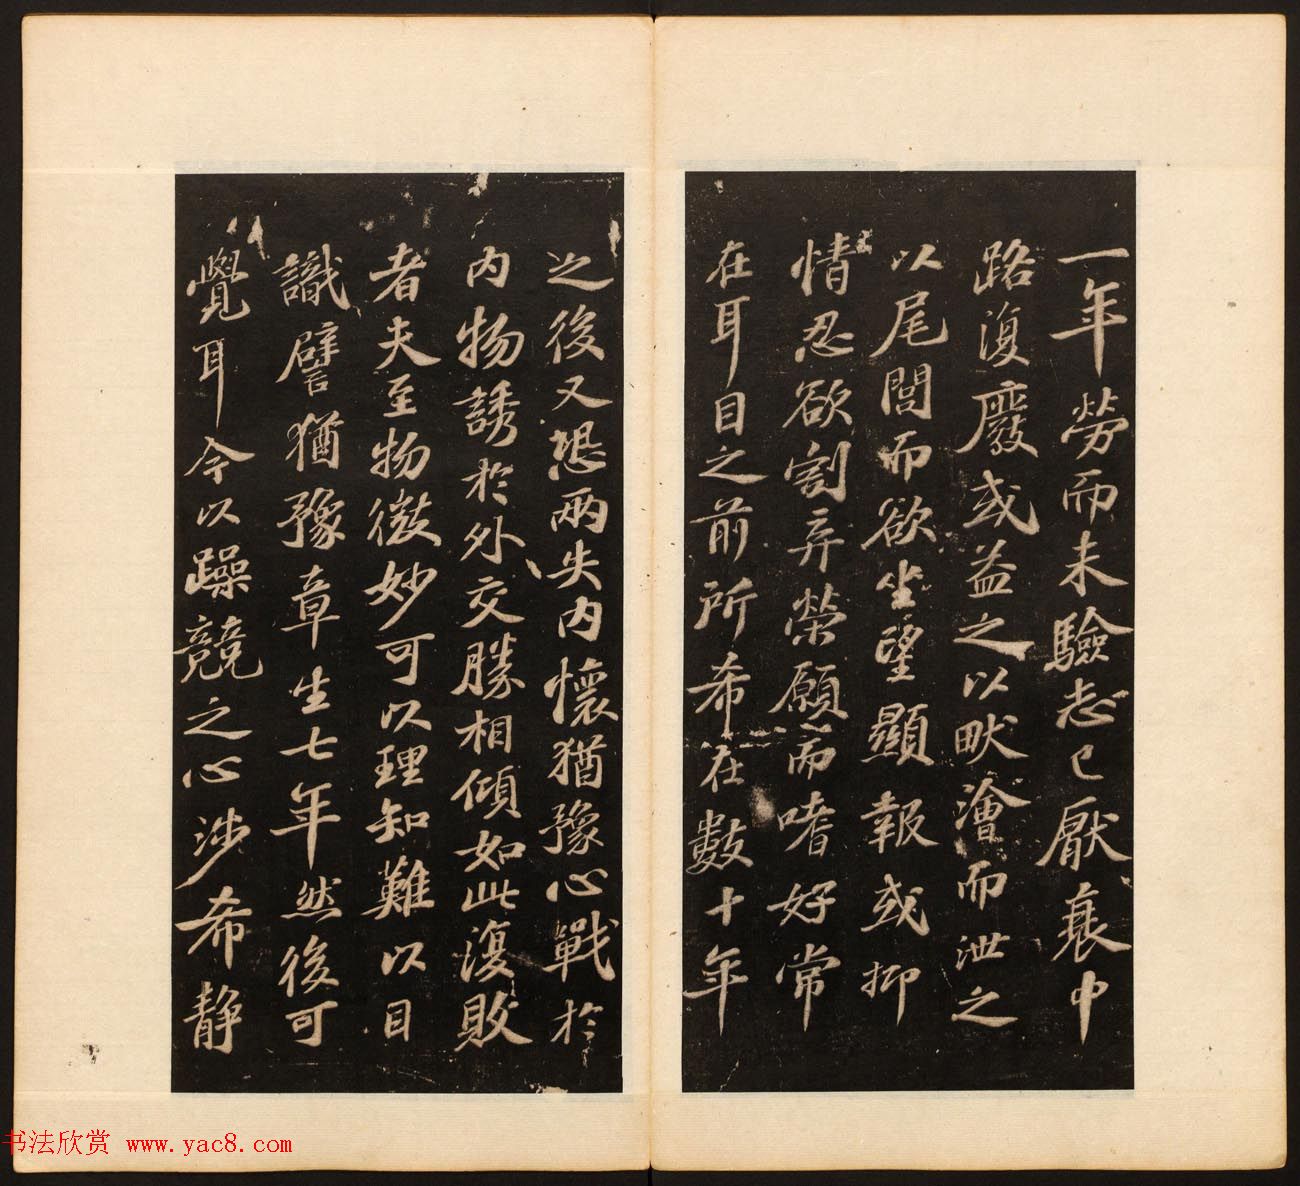 一年勞而未驗志已厭衰中
路復廢或益之以畎澮而泄之
以尾閭而欲坐望顯報或抑
情忍欲割弃榮願而嗜好常
在耳目之前所希在數十年
之後又恐兩失內懷猶豫心戰於
內物誘於外交賒相傾如此復敗
者夫至物微妙可以理知難以目
識譬猶豫章生七年然後可
覺耳今以躁競之心涉希静
书法欣赏 www.yac8.com